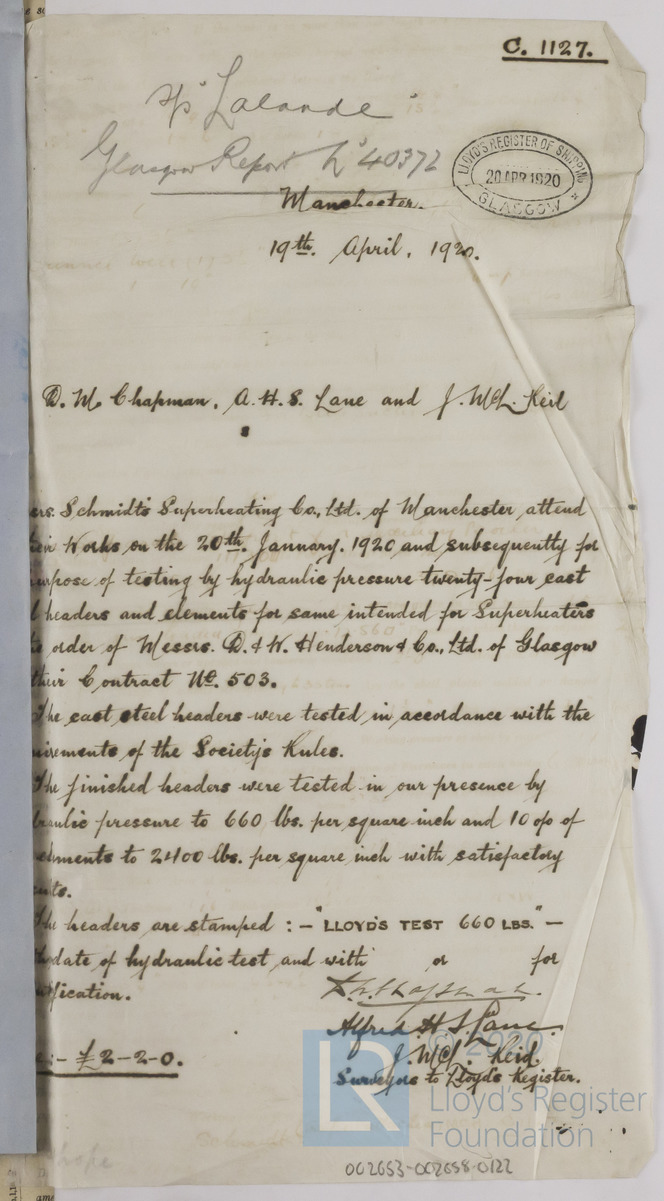 C. 1127.
s/s "Lalande"
Glasgow Report No 40372
LLOYD'S REGISTER OF SHIPPING
20 APR 1920
GLASGOW
Manchester.
19th. April, 1920.
D. M Chapman, A. H. S. Lane and J. McL. Reid
ers. Schmidt's Superheating Co., Ltd. of Manchester, attend
eir Works, on the 20th. January, 1920 and subsequently for
urpose of testing by hydraulic pressure twenty-four cast
l headers and elements for same intended for Superheaters
e order of Messrs. D. & W. Henderson & Co., Ltd. of Glasgow
their Contract No. 503.
The cast steel headers were tested in accordance with the
uirements of the Society's Rules.
The finished headers were tested in our presence by
draulic pressure to 660 lbs. per square inch and 10 o/o of
elements to 2400 lbs. per square inch with satisfactory
ults.
The headers are stamped : - "LLOYD'S TEST 660 LBS." -
date of hydraulic test and with or for
tification.
D. M. Chapman.
Alfred. H. S. Lane.
J. McL. Reid.
Surveyors to Lloyd's Register.
:- £2-2-0.
LR
© 2020
Lloyd's Register
Foundation
002653-002658-0122